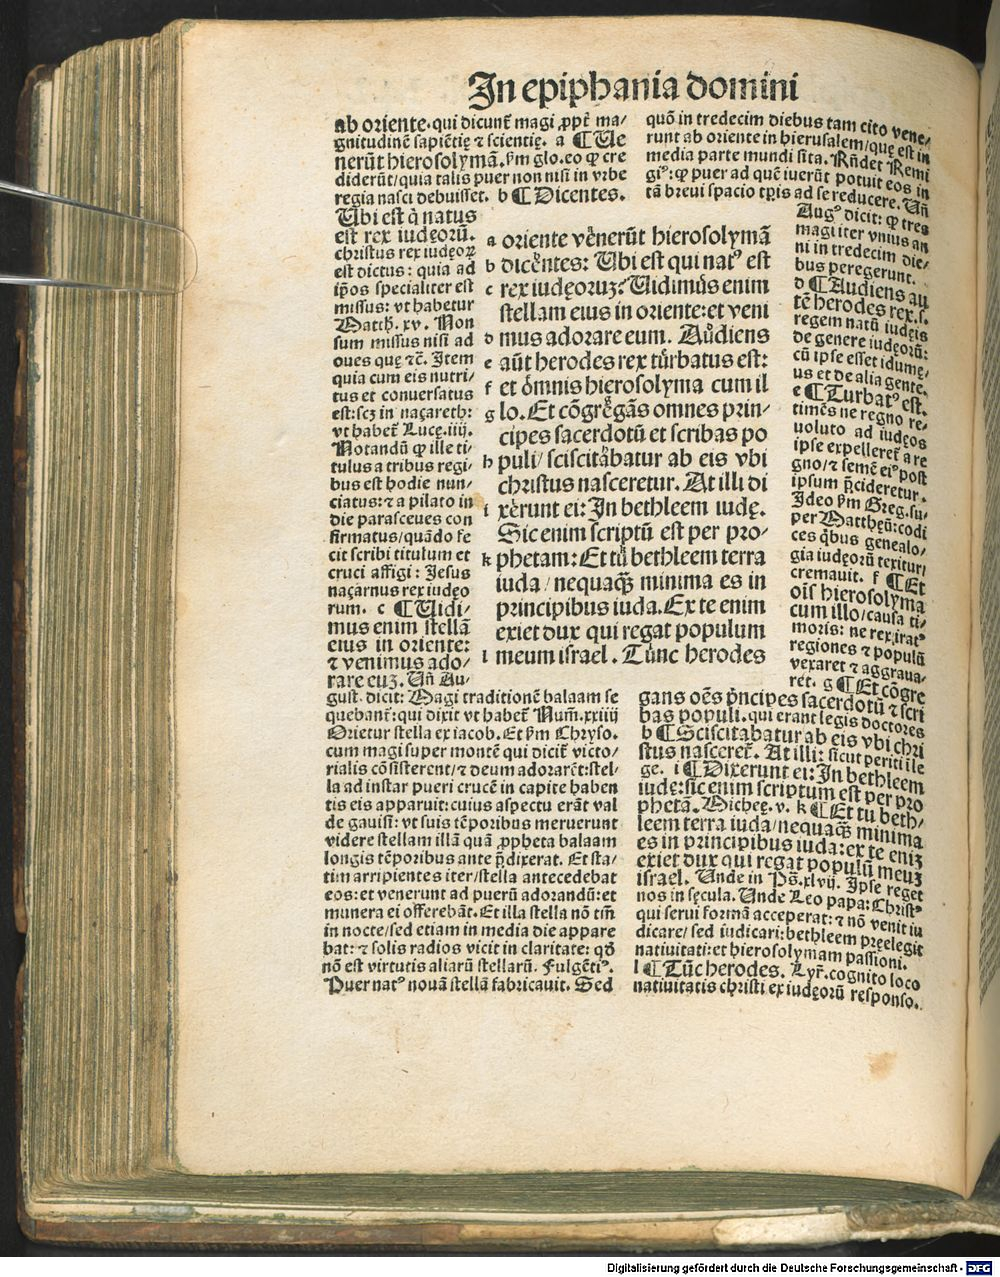 In epiphania domini
ab oriente. qui dicunt᷑ magi ꝓpt᷑ ma/
gnitudinē sapiētię ⁊ scientię. a ¶ Ue
nerūt hierosolymā. ẜm glo. eo ꝙ cre
diderūt/quia talis puer non nisi in vrbe
regia nasci debuisset. b ¶ Dicentes.
Ubi est q̇ natus
est rex iudęorū.
christus rex iudęoꝝ
est dictus: quia ad
ip̄os specialiter est
missus: vt habetur
Matth. xv. Non
sum missus nisi ad
oues quę ⁊c̄. Item
quia cum eis nutri/
tus et conuersatus
est: scꝫ in naçareth:
vt habet᷑ Lucę. iiij.
Notandū ꝙ ille ti/
tulus a tribus regi/
bus est hodie nun/
ciatus: ⁊ a pilato in
die parasceues con
firmatus/quādo fe
cit scribi titulum et
cruci affigi: Jesus
naçarnus rex iudęo
rum. c ¶ Uidi/
mus enim stellā
eius in oriente:
⁊ venimus ado/
rare euꝫ. Un̄ Au/
gust. dicit: Magi traditionē balaam se
quebant᷑: qui dixit vt habet᷑ Num̄. xxiiij
Orietur stella ex iacob. Et ẜm Chryso.
cum magi super montē qui dicit᷑ victo/
rialis cōsisterent/⁊ deum adorarēt: stel/
la ad instar pueri crucē in capite haben
tis eis apparuit: cuius aspectu erāt val
de gauisi: vt suis tēporibus meruerunt
videre stellam illā quā ꝓpheta balaam
longis tēporibus ante p̄dixerat. Et sta/
tim arripientes iter/stella antecedebat
eos: et venerunt ad puerū adorandū: et
munera ei offerebāt. Et illa stella nō tm̄
in nocte/sed etiam in media die appare
bat: ⁊ solis radios vicit in claritate: qd̄
nō est virtutis aliarū stellarū. Fulgētiꝰ.
Puer natꝰ nouā stellā fabricauit. Sed
a oriente vēnerūt hierosolymā
b dicētes: Ubi est qui natꝰ est
c rex iudęoruꝫ? Uidimus enim
stellam eius in oriente: et veni
d mus adorare eum. Audiens
e aūt herodes rex turbatus est:
f et omnis hierosolyma cum il
g lo. Et cōgregās omnes prin/
cipes sacerdotū et scribas po
h puli/ sciscitabatur ab eis vbi
christus nasceretur. At illi di
i xerunt ei: In bethleem iudę.
Sic enim scriptū est per pro/
k phetam: Et tu bethleem terra
iuda/ nequaꝗ̄ minima es in
principibus iuda. Ex te enim
exiet dux qui regat populum
l meum israel. Tunc herodes
quō in tredecim diebus tam cito vene/
runt ab oriente in hierusalem/quę est in
media parte mundi sita. Rn̄det Remi
giꝰ: ꝙ puer ad quē iuerūt potuit eos in
tā breui spacio tꝑis ad se reducere. Un̄
Augꝰ dicit: ꝙ tres
magi iter vnius an
ni in tredecim die/
bus peregerunt.
d ¶ Audiens au
tē herodes rex. s.
regem natū iudęis
de genere iudęorū:
cū ipse esset idumę/
us et de alia gente.
e ¶ Turbatꝰ est.
timēs ne regno re/
uoluto ad iudęos
ipse expelleret᷑ a re
gno/⁊ semē eiꝰ post
ipsum p̄cideretur.
Ideo ẜm Greg. su/
per Matthęū: codi
ces q̇bus genealo/
gia iudęorū texitur/
cremauit. f ¶ Et
oīs hierosolyma
cum illo/causa ti/
moris: ne rex iratꝰ
regiones ⁊ populū
vexaret ⁊ aggraua/
ret. g ¶ Et cōgre
gans oēs p̄ncipes sacerdotū ⁊ scri
bas populi. qui erant legis doctores
h ¶ Sciscitabatur ab eis vbi chri
stus nasceret᷑. At illi: sicut periti ile
ge. i ¶ Dixerunt ei: In bethleem
iudę: sic enim scriptum est per pro
phetā. Micheę. v. k ¶ Et tu beth/
leem terra iuda/nequaꝗ̄ minima
es in principibus iuda: ex te eniꝫ
exiet dux qui regat populū meuꝫ
israel. Unde in Ps̄. xlvij. Ipse reget
nos in sęcula. Unde Leo papa: Christꝰ
qui serui formā acceperat: ⁊ nō venit iu
dicare/ sed iudicari: bethleem pręelegit
natiuitati: et hierosolymam passioni.
l ¶ Tūc herodes. Lyr̄. cognito loco
natiuitatis christi ex iudęorū responso.
Digitalisierung gefördert durch die Deutsche Forschungsgemeinschaft - DFG